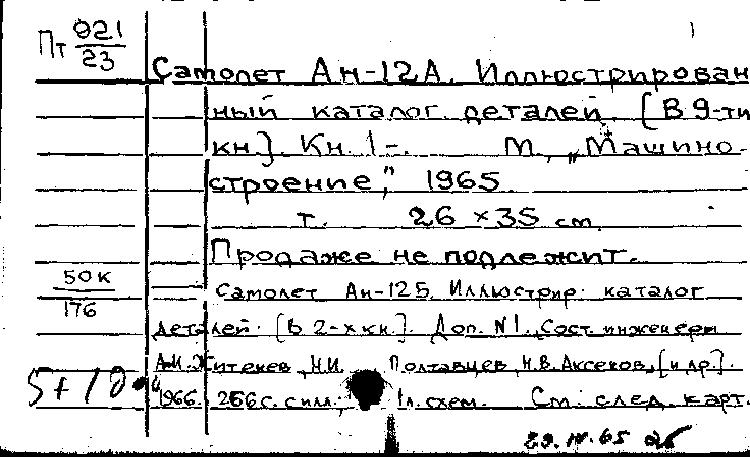 Пт 921/23
Самолет Ан-12А. Иллюстрирован
ный каталог деталей. [В 9-ти
кн]. Кн. 1-. М., „Машино-
строение," 1965
т. 26 × 35 см.
Продаже не подлежит.
50к/176
Самолет Ан-12Б. Иллюстрир. каталог
деталей. [В 2-х кн.]. Доп. N1. Сост. инженеры
А.И. Житенев, Н.И. Полтавцев, Н.В. Аксенов, [и др.].
1966. 266 с. с илл., 1 л. схем. См. след. карт.
5+10
29.IV.65